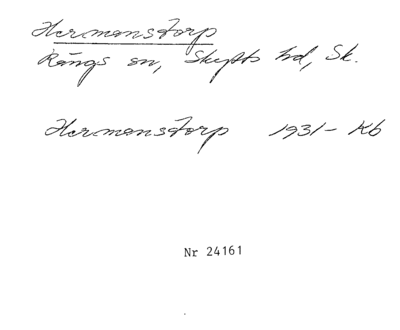 Hermanstorp
Rängs sn, Skytts hd, Sk.
Hermanstorp 1931- Kb
Nr 24161